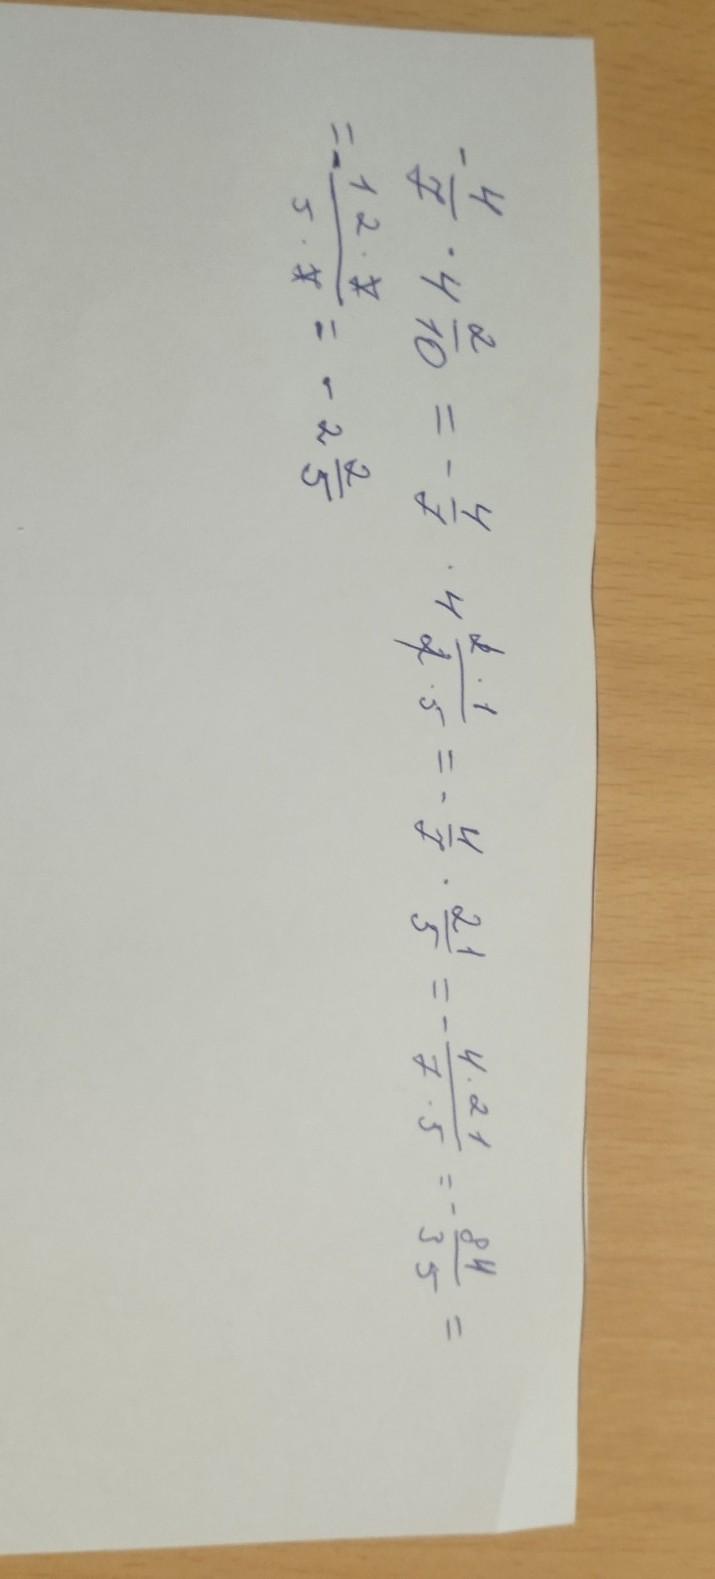 - 4/7 · 4 2/10 = - 4/7 · 4 2·1/2·5 = - 4/7 · 21/5 = - 4·21/7·5 = - 84/35 =
= - 12·7/5·7 = - 2 2/5